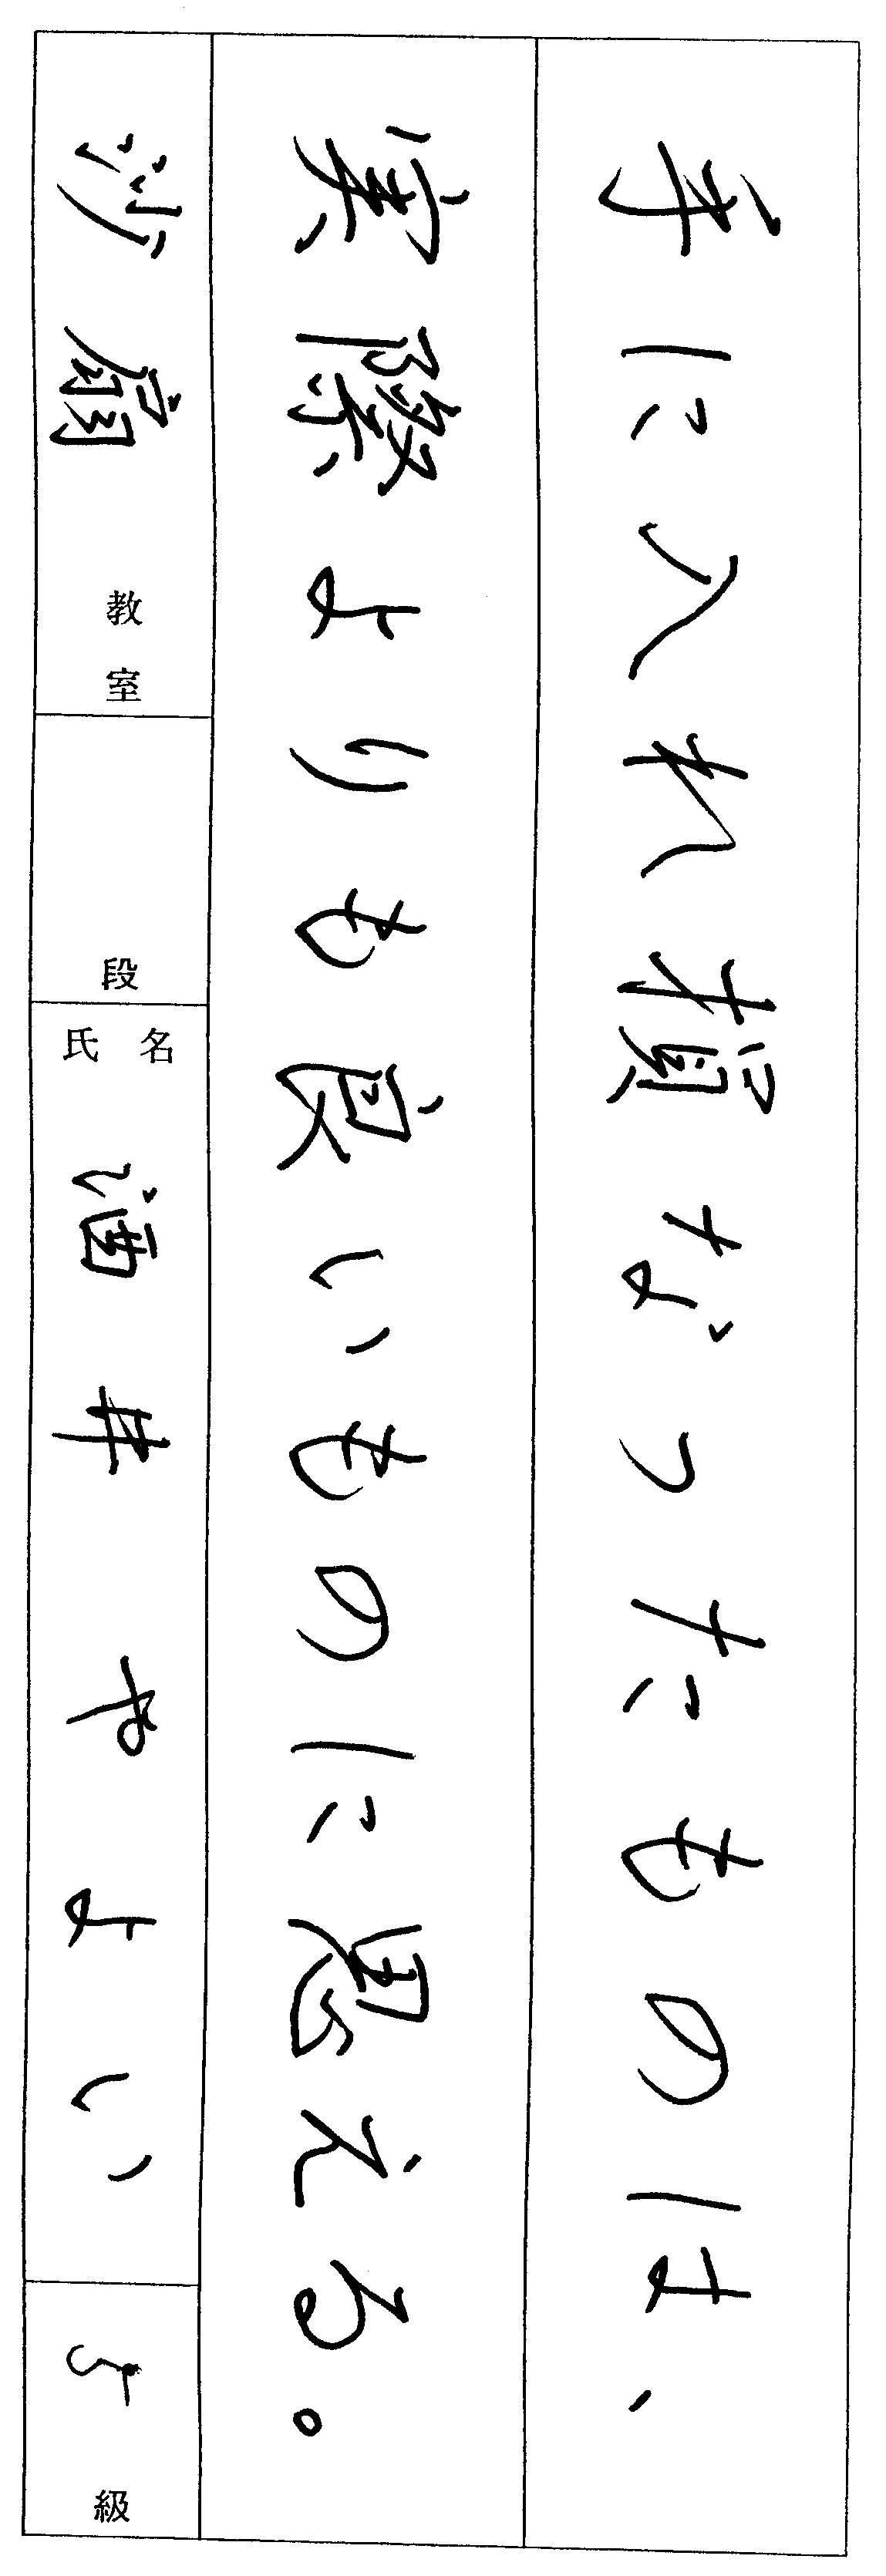 手に入れ損なったものは、
実際よりも良いものに思える。
沙扇 教室
段
氏名 酒井 やよい
級